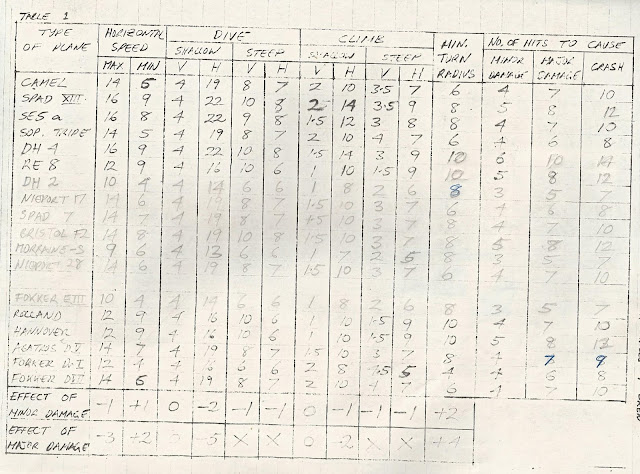 TABLE 1
TYPE OF PLANE HORIZONTAL SPEED DIVE CLIMB MIN. TURN RADIUS NO. OF HITS TO CAUSE
SHALLOW STEEP SHALLOW STEEP MINOR DAMAGE MAJOR DAMAGE CRASH
MAX MIN V H V H V H V H
CAMEL 14 5 4 19 8 7 2 10 3.5 7 6 4 7 10
SPAD XIII 16 9 4 22 10 8 2 14 3.5 9 8 5 8 12
SE5a 16 8 4 22 9 8 1.5 12 3 8 8 4 7 10
SOP. TRIPE 14 5 4 19 8 7 2 10 4 7 6 4 6 8
DH 4 16 9 4 22 10 8 1.5 14 3 9 10 6 10 14
RE 8 12 9 4 16 10 6 1 10 1.5 9 10 5 8 12
DH 2 10 4 4 14 6 6 1 8 2 6 8 3 5 7
NIEPORT 17 14 6 4 19 8 7 1.5 10 3 7 6 4 6 8
SPAD 7 14 7 4 19 8 7 1.5 10 3 7 8 4 7 10
BRISTOL F2 14 8 4 19 10 8 1.5 10 3 7 8 5 8 12
MORRAINE-S 9 6 4 13 6 6 1 7 2 5 8 3 5 7
NIEPORT 28 14 6 4 19 8 7 1.5 10 3 7 6 4 7 10
FOKKER EIII 10 4 4 14 6 6 1 8 2 6 8 3 5 7
ROLLAND 12 9 4 16 10 6 1 10 1.5 9 10 4 7 10
HANNOVER 12 9 4 16 10 6 1 10 1.5 9 10 5 8 12
14 7 4 19 8 7 1.5 10 3 7 8 4 7 9
FOKKER 12 4 4 6 6 2 8 4.5 5 4 4 6 8
FOKKER 14 5 4 19 8 7 2 10 4 7 6 4 7 10
EFFECT OF MINOR DAMAGE -1 +1 0 -2 -1 -1 0 -1 -1 -1 +2
EFFECT OF MAJOR DAMAGE -3 +2 0 -5 X X 0 -2 X X +4